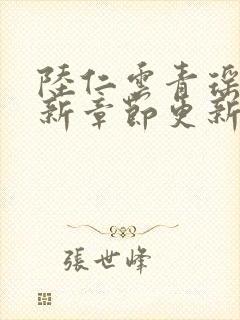 陸仁雲青瑤
新章節更新
張世峰